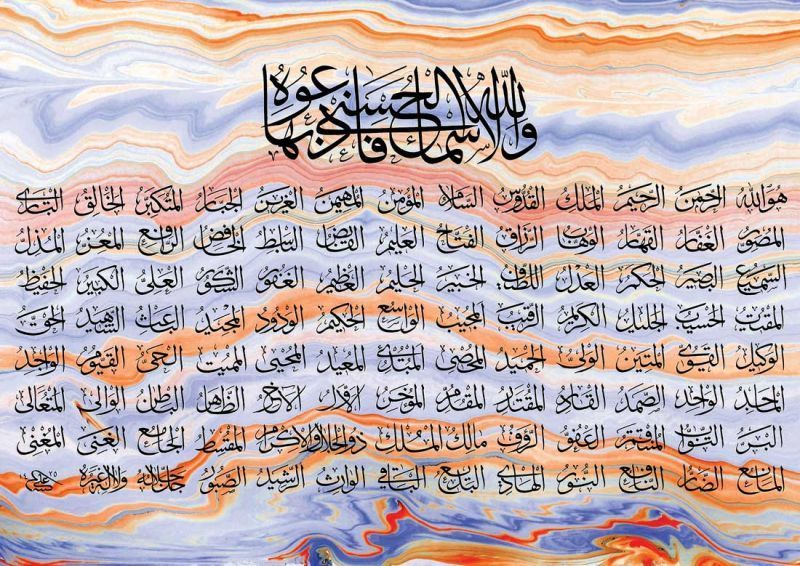 ولله الاسماء الحسنى فادعوه بها
هو الله الرحمن الرحيم الملك القدوس السلام المؤمن المهيمن العزيز الجبار المتكبر الخالق البارئ
المصور الغفار القهار الوهاب الرزاق الفتاح العليم القابض الباسط الخافض الرافع المعز المذل
السميع البصير الحكم العدل اللطيف الخبير الحليم العظيم الغفور الشكور العلي الكبير الحفيظ
المقيت الحسيب الجليل الكريم الرقيب المجيب الواسع الحكيم الودود المجيد الباعث الشهيد الحق
الوكيل القوي المتين الولي الحميد المحصي المبدئ المعيد المحيي المميت الحي القيوم الواجد
الماجد الواحد الصمد القادر المقتدر المقدم المؤخر الاول الاخر الظاهر الباطن الوالي المتعالي
البر التواب المنتقم العفو الرؤف مالك الملك ذو الجلال والاكرام المقسط الجامع الغني المغني
المانع الضار النافع النور الهادي البديع الباقي الوارث الرشيد الصبور جل جلاله ولا اله غيره